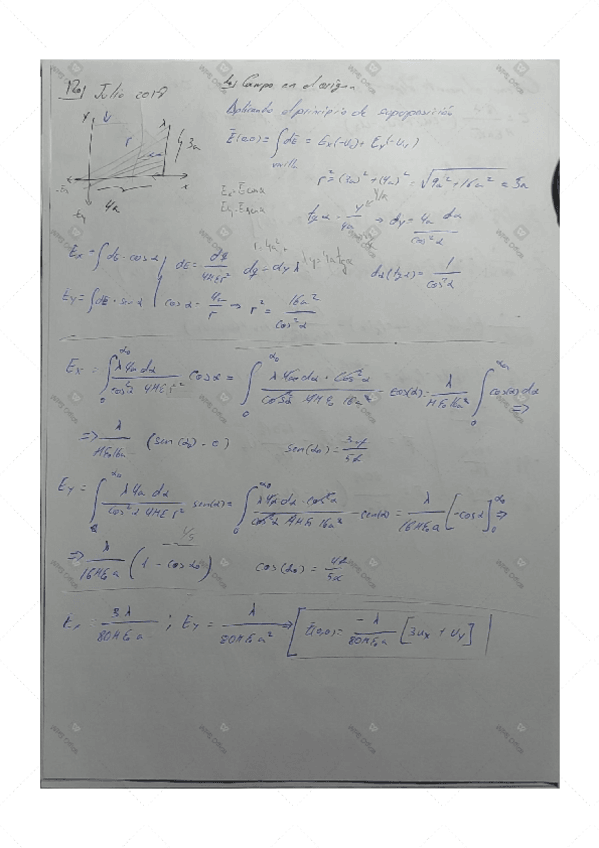 Julio 2018
b) Campo en el origen
Aplicando el principio de superposición
E(0,0) = ∫varilla dE = Ex(-Ux) + Ey(-Uy)
r² = (3a)² + (4a)² = √9a² + 16a² = 5a
y λ 3a
r
4a x
-Ex
-Ey
tg α = y/4a → dy = 4a dα/cos²α
Ex = ∫dE·cos α dE = dq/4πεr² dq = dy λ dα(tg α) = 1/cos²α
Ey = ∫dE·sin α cos α = 4a/r → r² = 16a²/cos²α
Ex = ∫₀^α₀ λ4a dα/cos²α 4πε r² cos α = ∫₀^α₀ λ4a dα·cos²α/cos²α 4πε₀ 16a² cos(α) = λ/πε₀16a ∫₀^α₀ cos(α) dα ⇒
⇒ λ/πε₀16a (sen(α₀) - 0) sen(α₀) = 3a/5a
Ey = ∫₀^α₀ λ4a dα/cos²α 4πε r² sen(α) = ∫₀^α₀ λ4a dα·cos²α/cos²α 4πε₀ 16a² sen(α) = λ/16πε₀a [-cos α]₀^α₀ ⇒
1/5
⇒ λ/16πε₀a (1 - cos α₀) cos(α₀) = 4a/5a
Ex = 3λ/80πε₀a ; Ey = λ/80πε₀a² ⇒ E(0,0) = -λ/80πε₀a [3Ux + Uy]